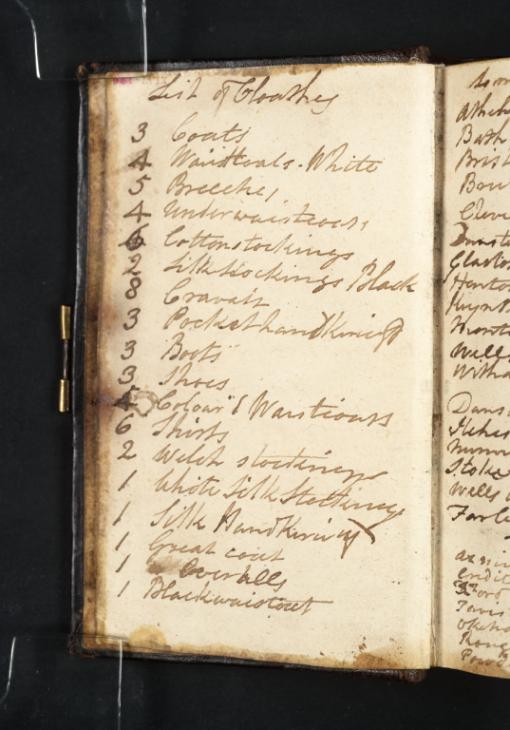 List of Cloathes
3 Coats
4 Waistcoats. White
5 Breeches
4 Underwaistcoats
6 Cotton stockings
2 Silk Stockings Black
8 Cravats
3 Pocket handkerchief
3 Boots
3 Shoes
4 Colour'd Waistcoats
6 Shirts
2 Welch stockings
1 White Silk Stockings
1 Silk Handkerchief
1 Great coat
1 Overalls
1 Black waistcoat
Bath
Brist
Wells
Witha
Stoke
Wells